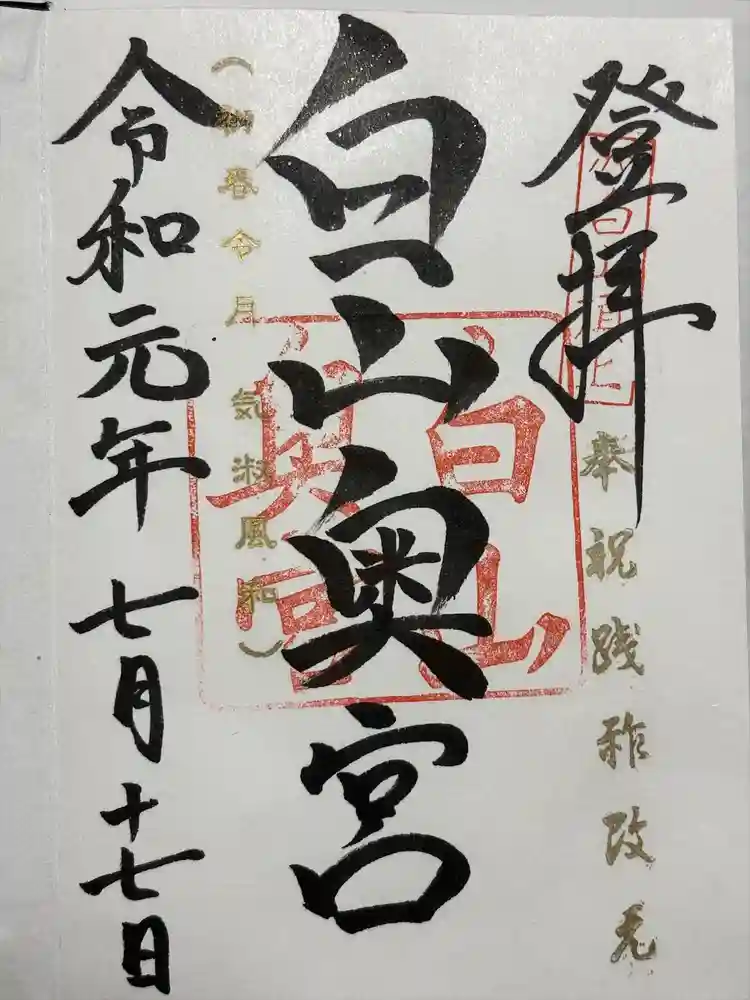 登拝
奉祝践祚改元
白山奥宮
白山
奥宮
(初春令月 気淑風和)
令和元年 七月十七日